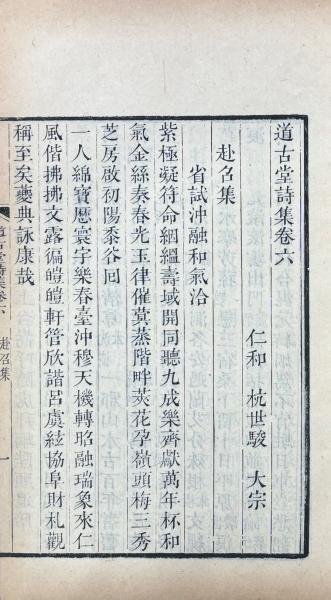 道古堂詩集卷六
仁和 杭世駿 大宗
赴召集
省試沖融和氣洽
紫極凝符命絪縕壽域開同聽九成樂齊獻萬年杯和
氣金絲奏春光玉律催蓂蒸階畔莢花孕嶺頭梅三秀
芝房啟初陽黍谷回
一人綿寶厯寰宇樂春臺沖穆天機轉昭融瑞象來仁
風偕拂拂文露徧皚皚軒管欣諧呂虞絃協阜財札觀
稱至矣夔典詠康哉
道古堂詩集卷六 赴召集 一